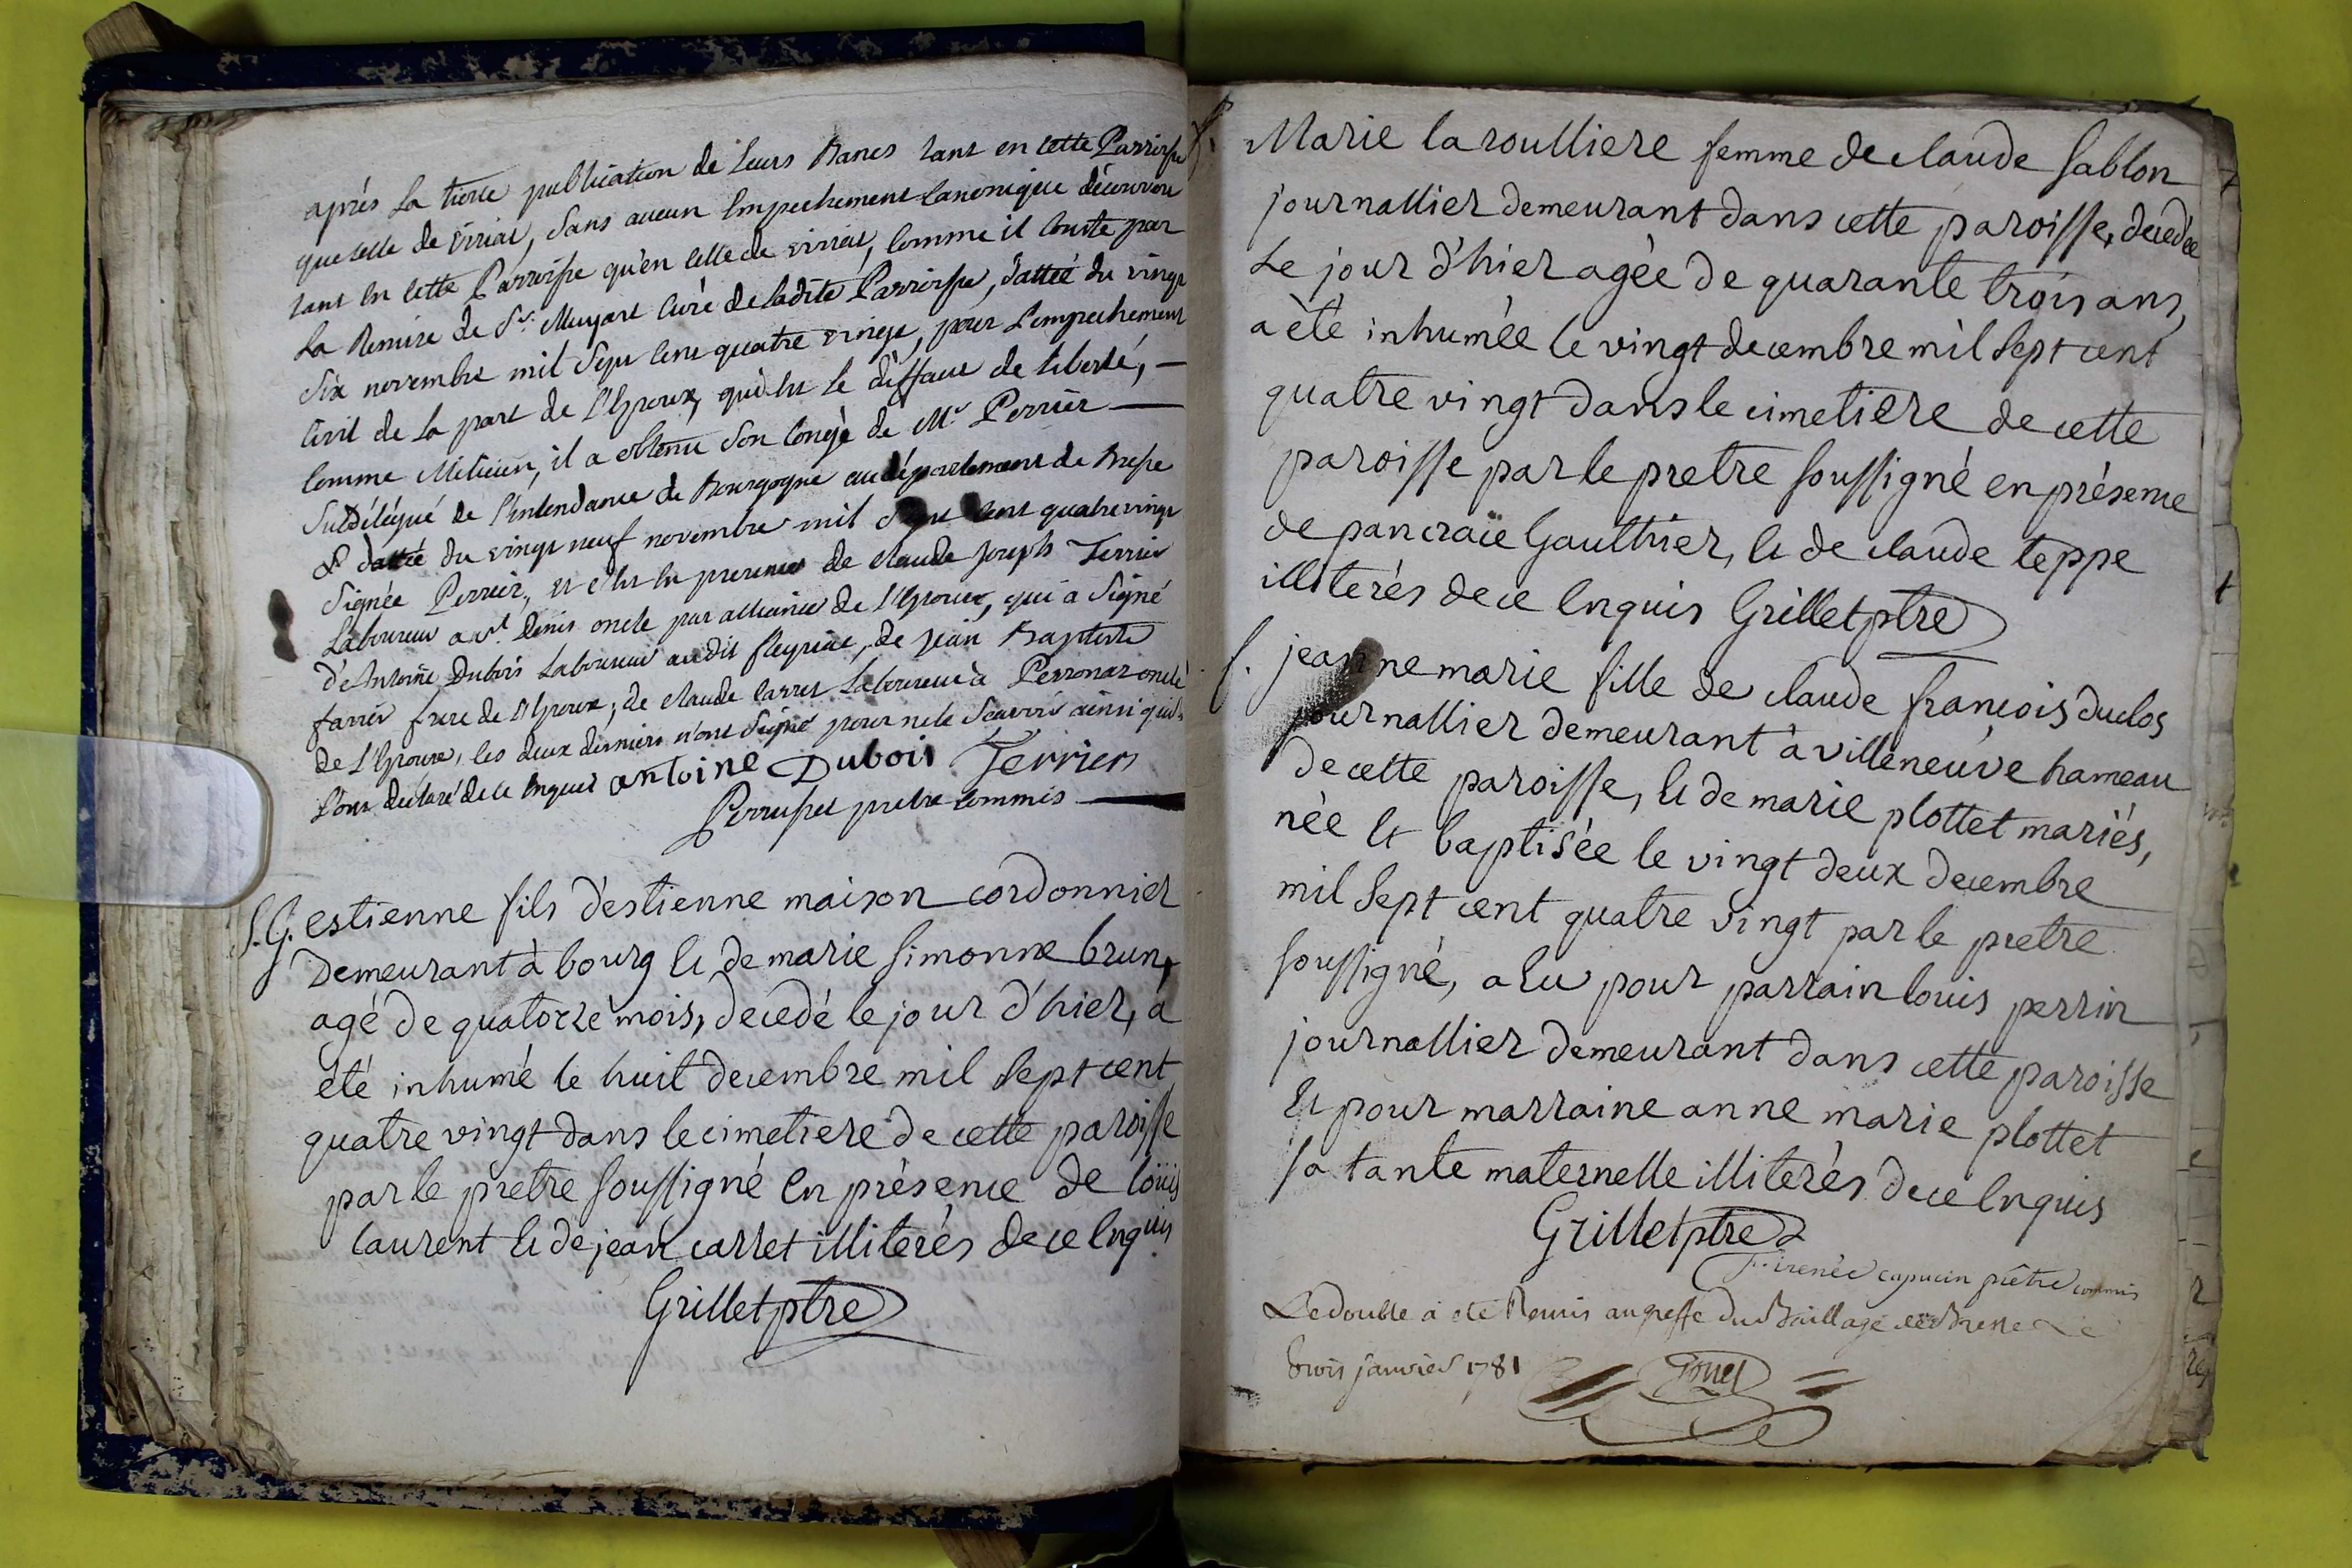 après la trève publication de leurs Bancs tant en cette Parroisse
que celle de viriat, sans aucun Empechement Canonique découvert
tant en cette Parroisse qu'en celle de viriat, Comme il Conste par
La Remise de Sr. Muyart Curé de ladite Parroisse, dattée du vingt
Six novembre mil Sept Cent quatre vingt, pour L'empechement
Civil de La part de L'Epoux, qui est le déffaut de liberté, —
Comme Milicien, il a obtenu Son Congé de Mr Perrier —
Subdélégué de l'intendance de Bourgogne au département de Bresse
& dattée du vingt neuf novembre mil Sept Cent quatre vingt
Signée Perrier, et c'est en presence de claude joseph Terrier
Laboureur a St Denis oncle par alliance de l'Epoux, qui a Signé
d'Antoine Dubois Laboureur audit fleyriat, de jean Baptiste
frere de l'Epoux, de claude Carret Laboureur à Perronas oncle
de L'Epouse, les deux derniers n'ont Signé pour ne le Sçavoir ainsi qu'ils
l'ont déclaré de ce Enquis antoine Dubois Terrier
pretre commis
S.G. estienne fils d'estienne maison cordonnier
Demeurant à bourg et de marie simonne brun,
agé de quatorze mois, decedé le jour d'hier, a
été inhumé le huit decembre mil sept cent
quatre vingt dans le cimetiere de cette paroisse
par le prètre soussigné en présence de loüis
laurent et de jean carret illiterés de ce enquis
Grillet ptre
Marie la roulliere femme de claude sablon
journallier demeurant dans cette paroisse, decedée
Le jour d'hier agée de quarante trois ans,
a été inhumée le vingt decembre mil sept cent
quatre vingt dans le cimetiere de cette
paroisse par le pretre soussigné en présence
de pancrace Gaulthier, et de claude teppe
illiterés de ce enquis Grillet ptre
f. jeanne marie fille de claude françois duclos
journallier demeurant à villeneuve hameau
de cette paroisse, et de marie plottet mariés,
née et baptisée le vingt deux decembre
mil sept cent quatre vingt par le pretre
soussigné, a eu pour parrain louis perrin
journallier demeurant dans cette paroisse
et pour marraine anne marie plottet
sa tante maternelle illiterés de ce enquis
Grillet ptre
f. irenée capucin prêtre commis
Le double a eté Remis au greffe du Baillage de Bresse Le
trois janvier 1781